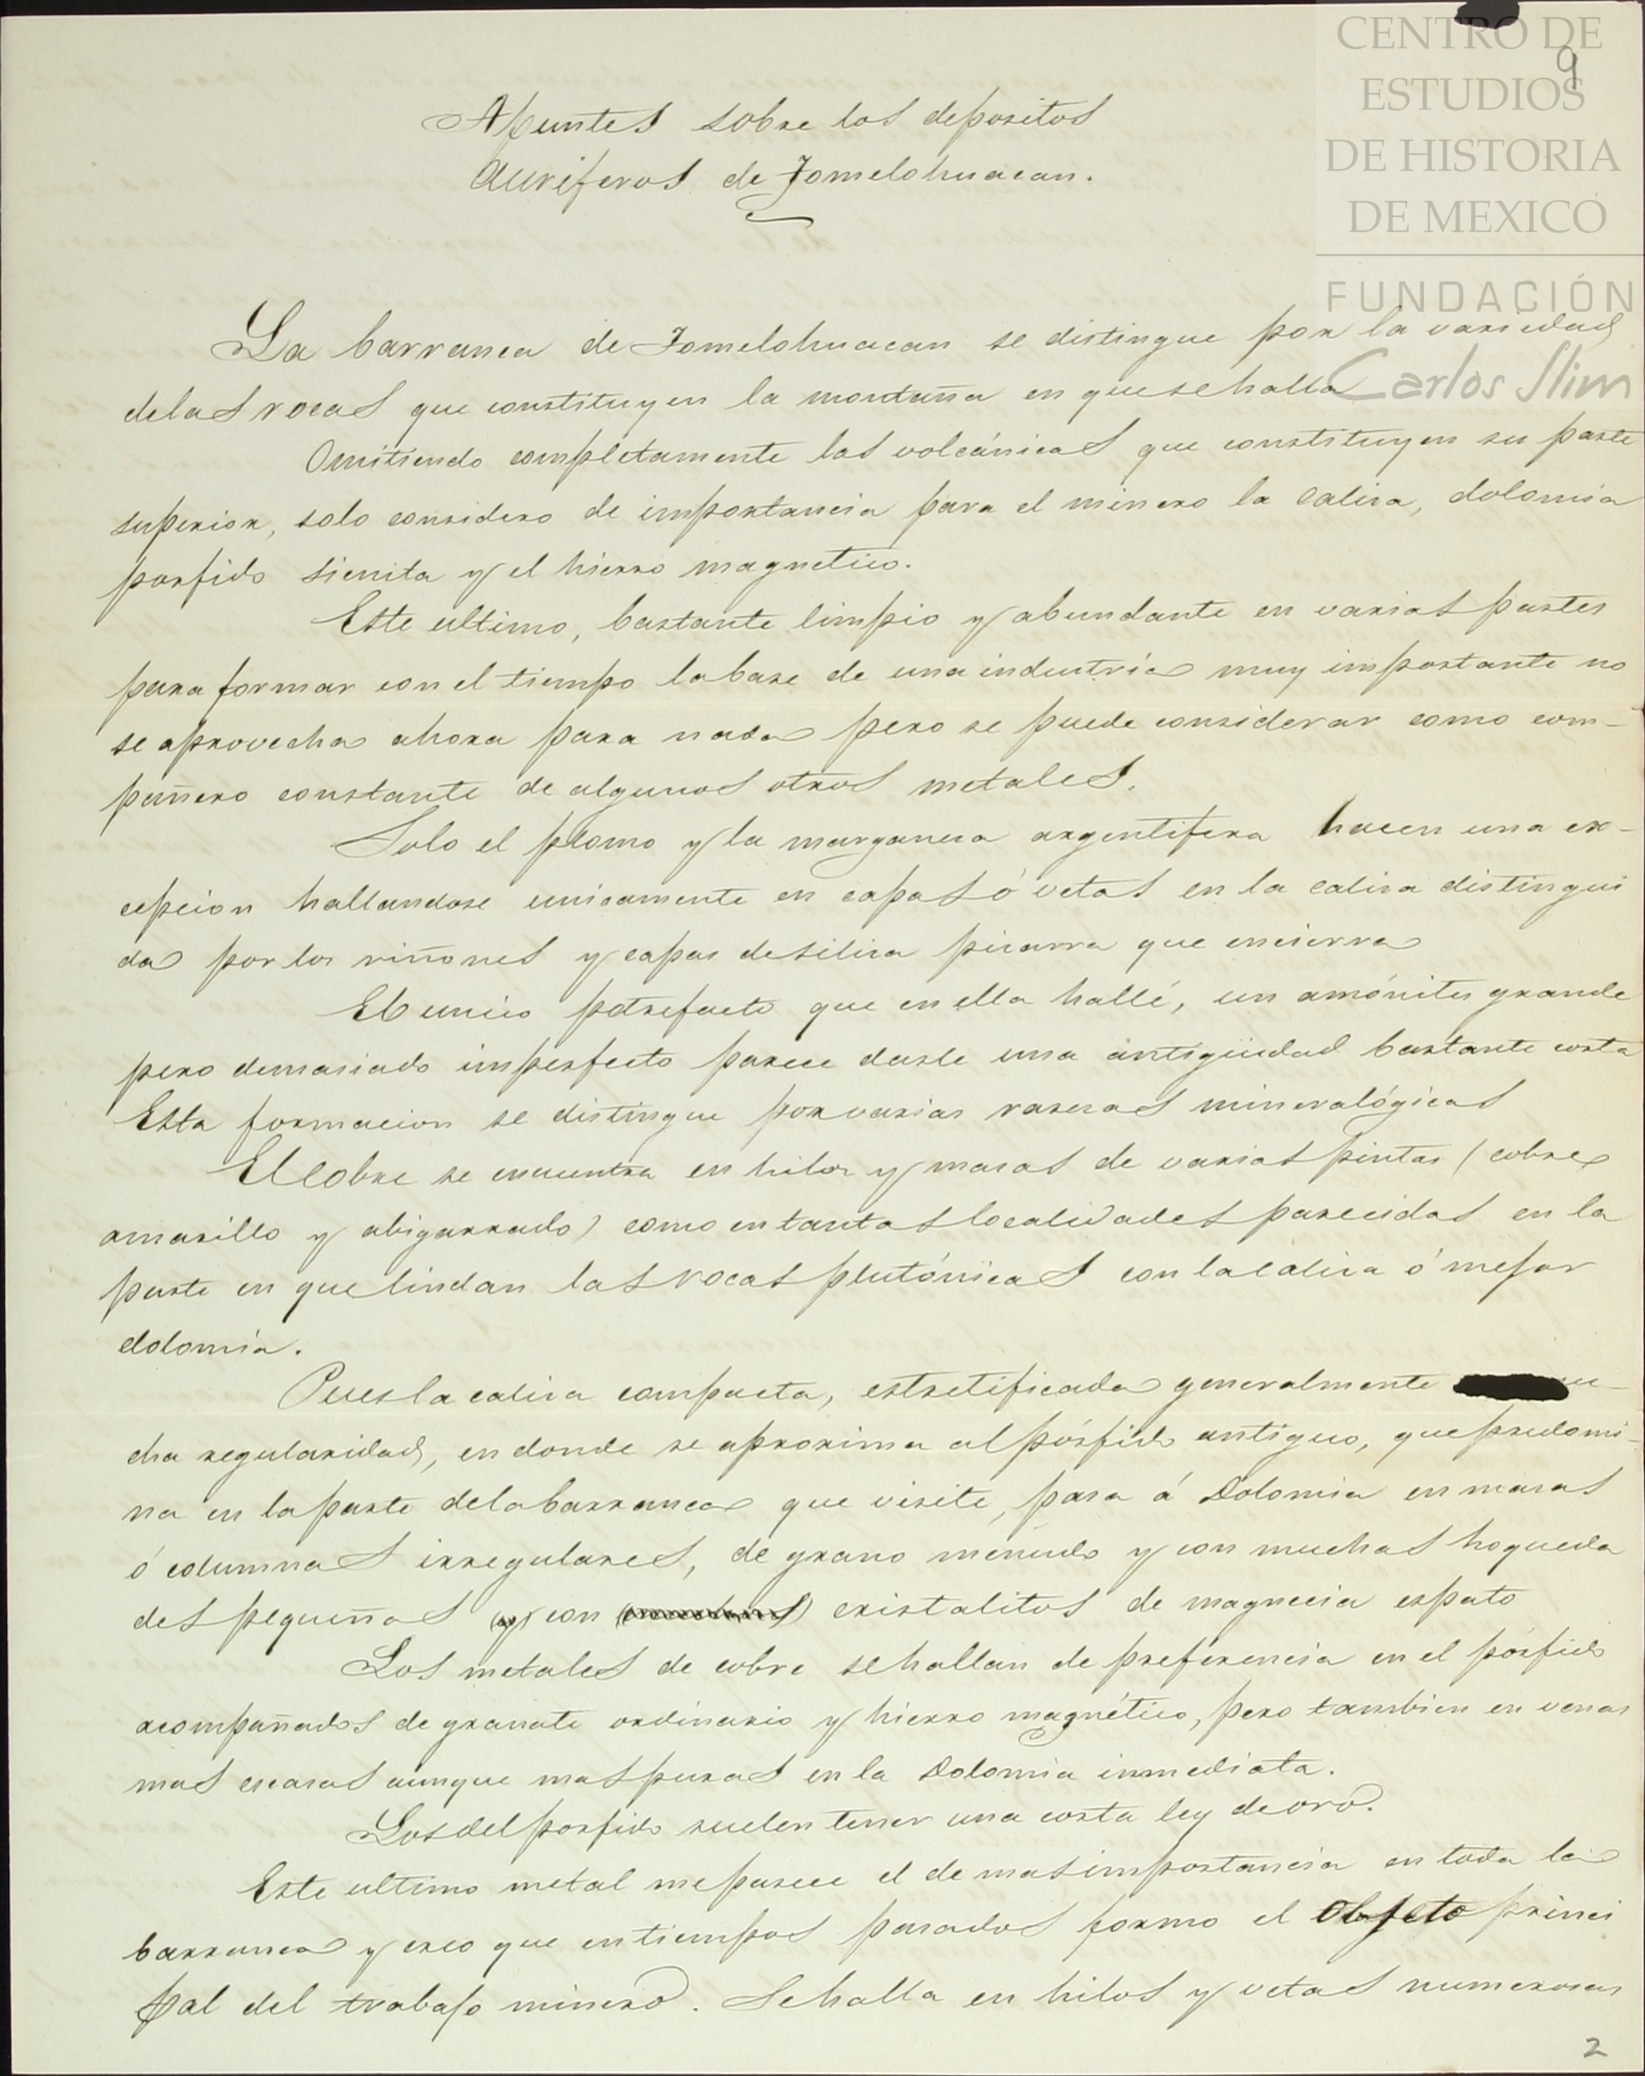 CENTRO DE
ESTUDIOS
DE HISTORIA
DE MEXICO
FUNDACIÓN
Carlos Slim
9
Apuntes sobre los depositos
auriferos de Jomelohuacan.
La barranca de Jomelohuacan se distingue por la variedad
de las rocas que constituyen la montaña en que se halla
Omitiendo completamente las volcánicas que constituyen su parte
superior, solo considero de importancia para el minero la caliza, dolomia
porfido sienita y el hierro magnetico.
Este ultimo, bastante limpio y abundante en varias partes
para formar con el tiempo la base de una industria muy importante no
se aprovecha ahora para nada pero se puede considerar como com-
pañero constante de algunos otros metales.
Solo el plomo y la manganesa argentifera hacen una ex-
cepcion hallandose unicamente en capas ó vetas en la caliza distingui
da por los riñones y capas de siliza pizarra que encierra
El unico petrefacto que en ella hallé, un amónites grande
pero demasiado imperfecto parece darle una antigüedad bastante corta
Esta formacion se distingue por varias rarezas mineralógicas
El cobre se encuentra en hilos y masas de varias pintas (cobre
amarillo y abigarrado) como en tantas localidades parecidas en la
parte en que lindan las rocas plutónicas con la caliza ó mejor
dolomia.
Pues la caliza compacta, estretificada generalmente
cha regularidad, en donde se aproxima al pórfido antiguo, que predomi-
na en la parte de la barranca que visite, pasa á Dolomia en masas
ó columnas irregulares, de grano menudo y con muchas hoqueda
des pequeñas (y) con cristalitos de magnecia espato
Los metales de cobre se hallan de preferencia en el pórfido
acompañados de granate ordinario y hierro magnético, pero tambien en venas
mas escasas aunque mas puras en la Dolomia inmediata.
Los del porfido suelen tener una corta ley de oro.
Este ultimo metal me parece el de mas importancia en toda la
barranca y creo que en tiempos pasados formo el Objeto princi
pal del trabajo minero. Se halla en hilos y vetas numerosas
2